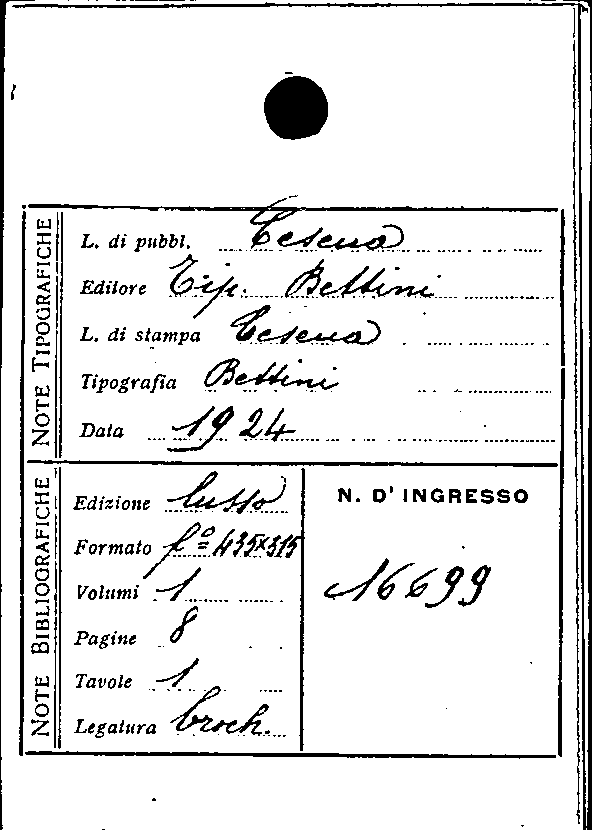 NOTE TIPOGRAFICHE
L. di pubbl. Cesena
Editore Tip. Bettini
L. di stampa Cesena
Tipografia Bettini
Data 1924
NOTE BIBLIOGRAFICHE
Edizione lusso
Formato fº 435x315
Volumi 1
Pagine 8
Tavole 1
Legatura broch.
N. D' INGRESSO
16699